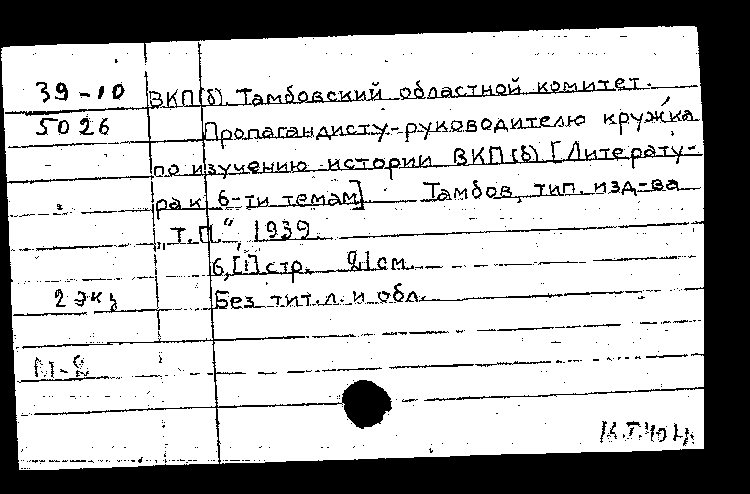 39-10
5026
ВКП(б). Тамбовский областной комитет.
Пропагандисту-руководителю кружка
по изучению истории ВКП(б) [Литерату-
ра к 6-ти темам]. Тамбов, тип. изд-ва
„Т.П.“, 1939.
6,[1] стр. 21 см.
2 экз
Без тит.л. и обл.